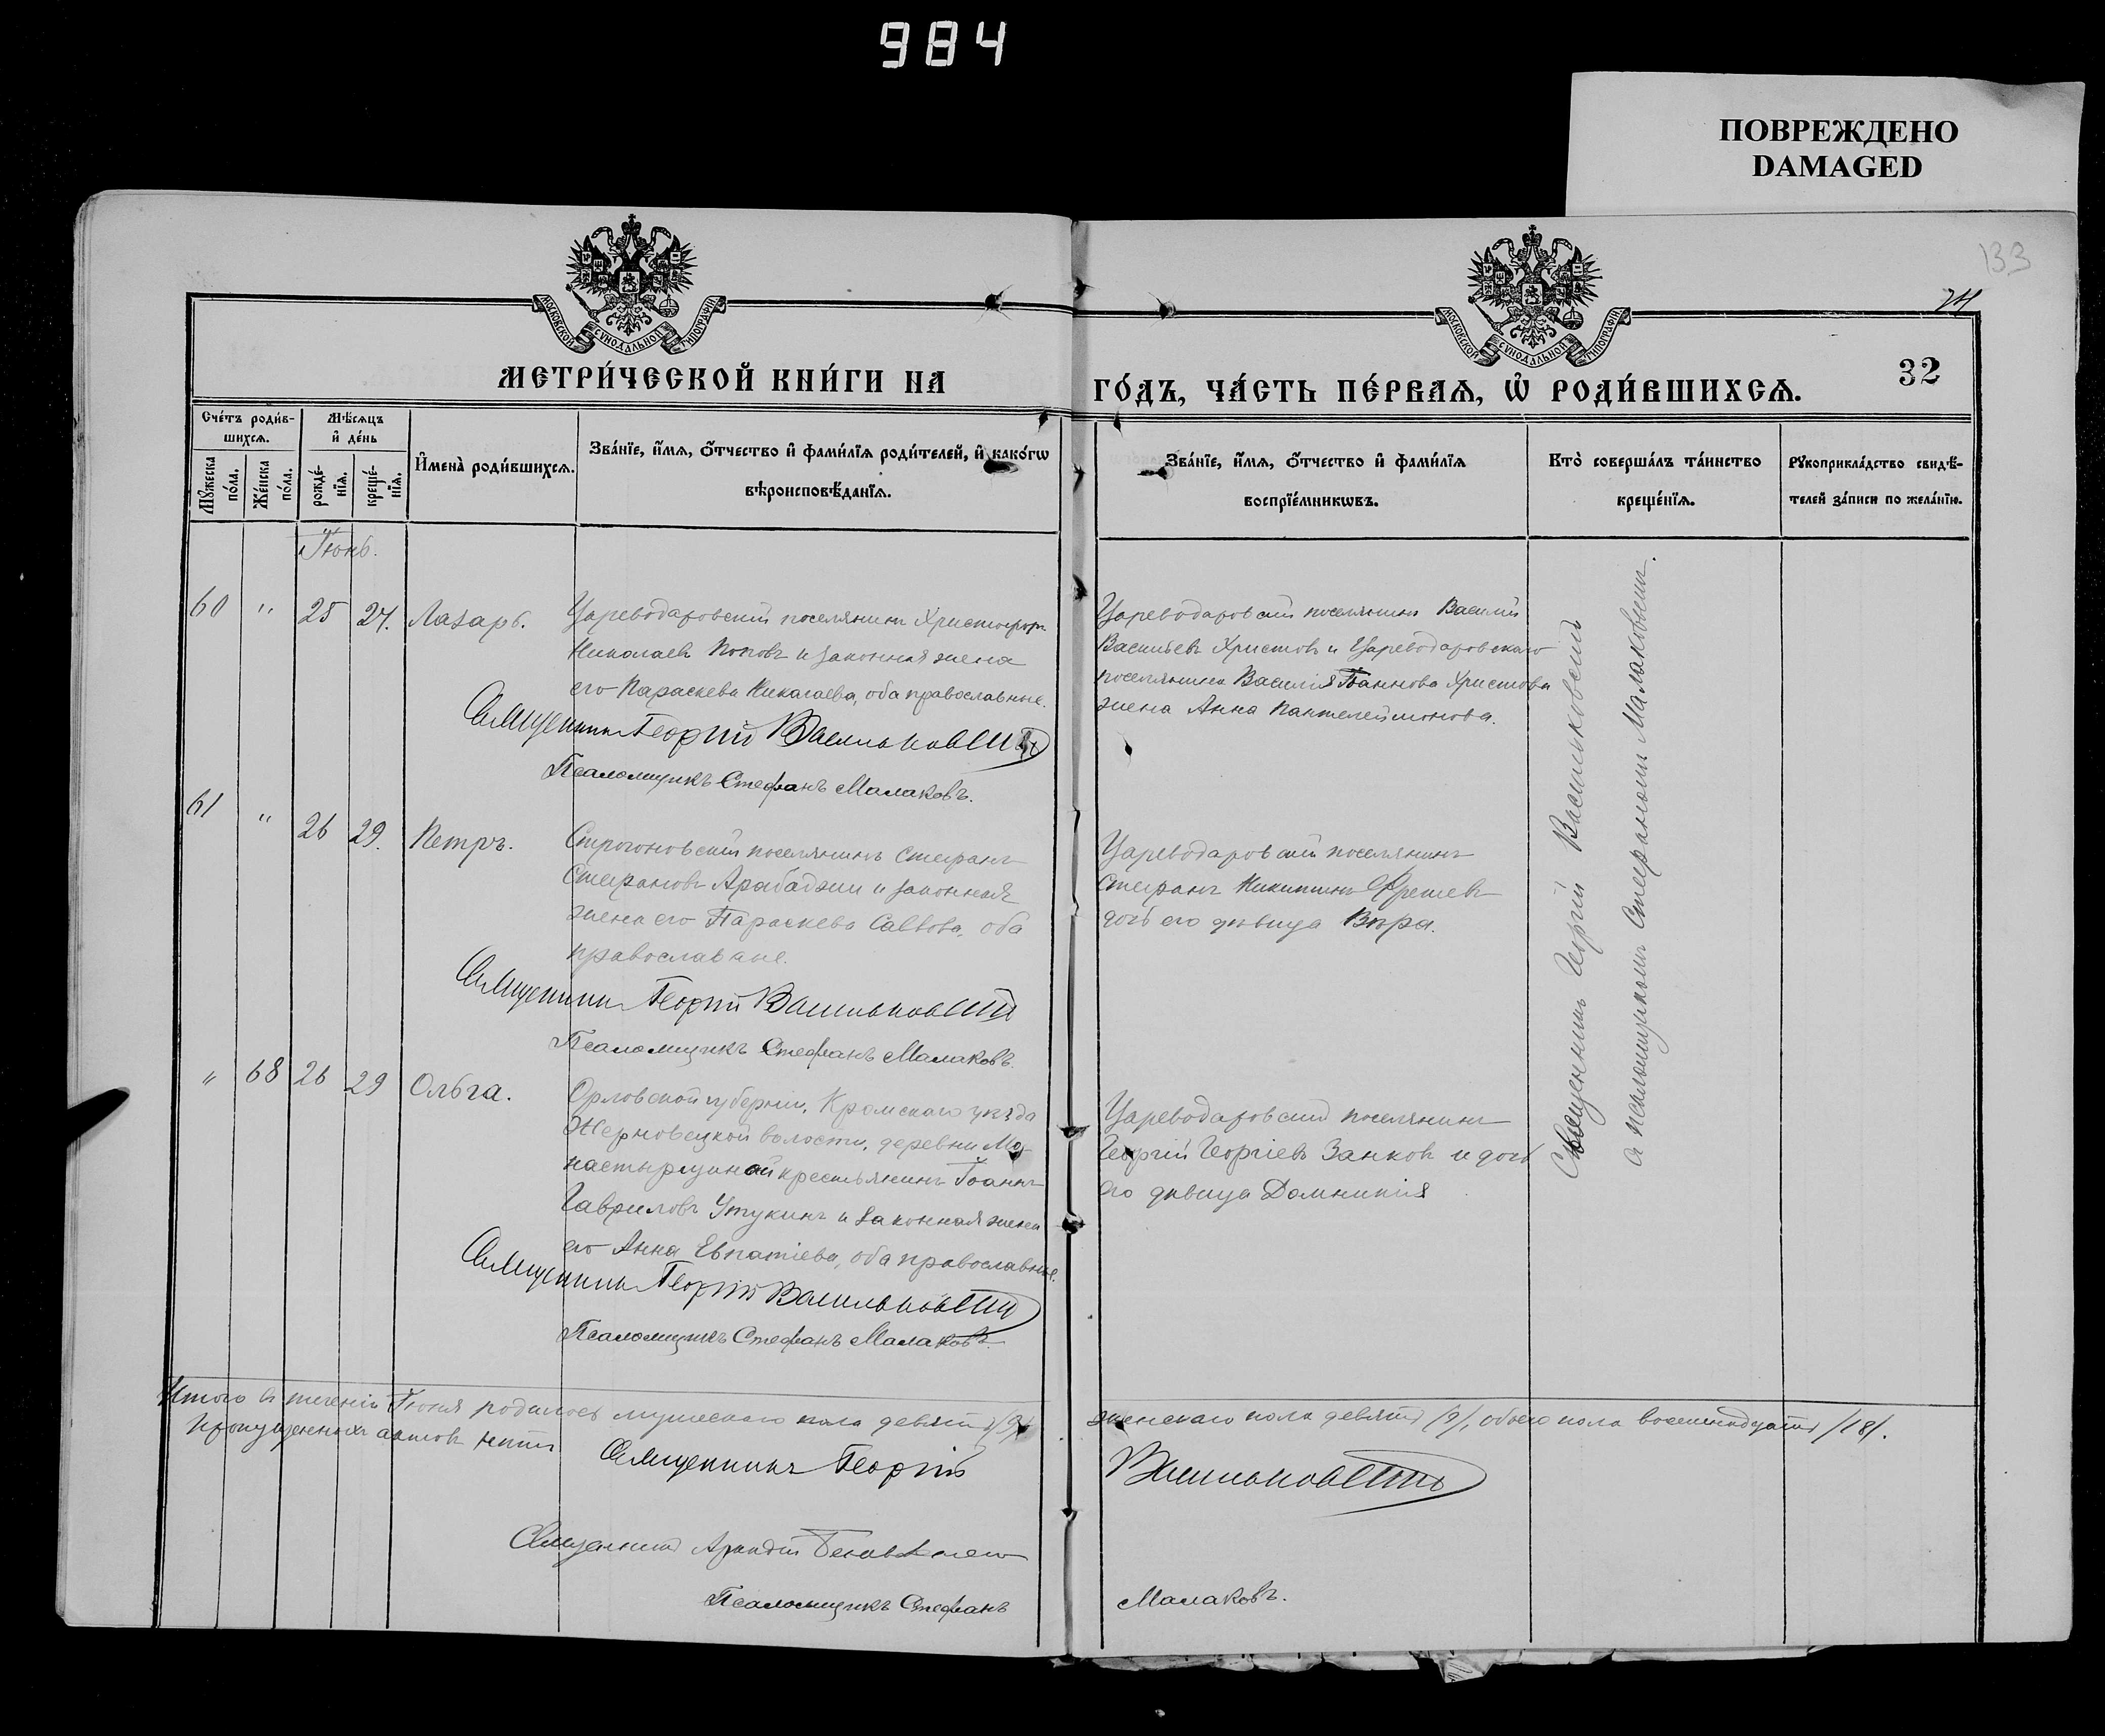 984
ПОВРЕЖДЕНО
DAMAGED
133
74
МОСКОВСКОЙ СѴНОДАЛЬНОЙ ТИПОГРАФІИ
МОСКОВСКОЙ СѴНОДАЛЬНОЙ ТИПОГРАФІИ
32
МЕТРИ́ЧЕСКОЙ КНИ́ГИ НА
ГО́ДЪ, ЧА́СТЬ ПЕ́РВАѦ, Ѡ҆ РОДИ́ВШИХСѦ.
Сче́тъ роди́в-
шихсѧ.
Мꙋ́жеска по́ла.
Же́нска по́ла.
Мѣ́сѧцъ и҆ де́нь
рожде́-нїѧ.
креще́-нїѧ.
И҆мена̀ роди́вшихсѧ.
Зва́нїе, и҆́мѧ, ѻ҆́тчество и҆ фами́лїѧ роди́телей, и҆ како́гѡ
вѣроисповѣ́данїѧ.
Зва́нїе, и҆́мѧ, ѻ҆́тчество и҆ фами́лїѧ
воспрїе́мникѡвъ.
Кто̀ соверша́лъ та́инство
креще́нїѧ.
Рꙋкоприкла́дство свидѣ́-
телей за́писи по жела́нїю.
Іюнь.
60 " 25 27. Лазарь.
Цареводаровскій поселянинъ Христофоръ
Николаевъ Поповъ и законная жена
его Параскева Николаева, оба православные.
Священникъ Георгій Васильковскій
Псаломщикъ Стефанъ Малаковъ.
Цареводаровскій поселянинъ Василій
Васильевъ Христовъ и Цареводаровскаго
поселянина Василія Іоаннова Христова
жена Анна Пантелеймонова.
61 " 26 29. Петръ.
Строгоновскій поселянинъ Стефанъ
Стефановъ Арабаджи и законная
жена его Параскева Саввова, оба
православные.
Священникъ Георгій Васильковскій
Псаломщикъ Стефанъ Малаковъ.
Цареводаровскій поселянинъ
Стефанъ Никитинъ
дочь его дѣвица Вѣра.
" 68 26 29 Ольга.
Орловской губерніи, Кромскаго уѣзда
Жерновецкой волости, деревни Мо-
настырщиной крестьянинъ Іоаннъ
Гавриловъ Утукинъ и законная жена
его Анна Евпатіева, оба православные.
Священникъ Георгій Васильковскій
Псаломщикъ Стефанъ Малаковъ.
Цареводаровскій поселянинъ
Георгій Георгіевъ Занковъ и дочь
его дѣвица Домникія
Священникъ Георгій Васильковскій
съ псаломщикомъ Стефаномъ Малаковымъ.
Итого въ теченіи Іюня родилось мужескаго пола девять /9/ женскаго пола девять /9/, обоего пола восемнадцать /18/.
Пропущенныхъ актовъ нѣтъ
Священникъ Георгій Васильковскій
Священникъ
Псаломщикъ Стефанъ Малаковъ.